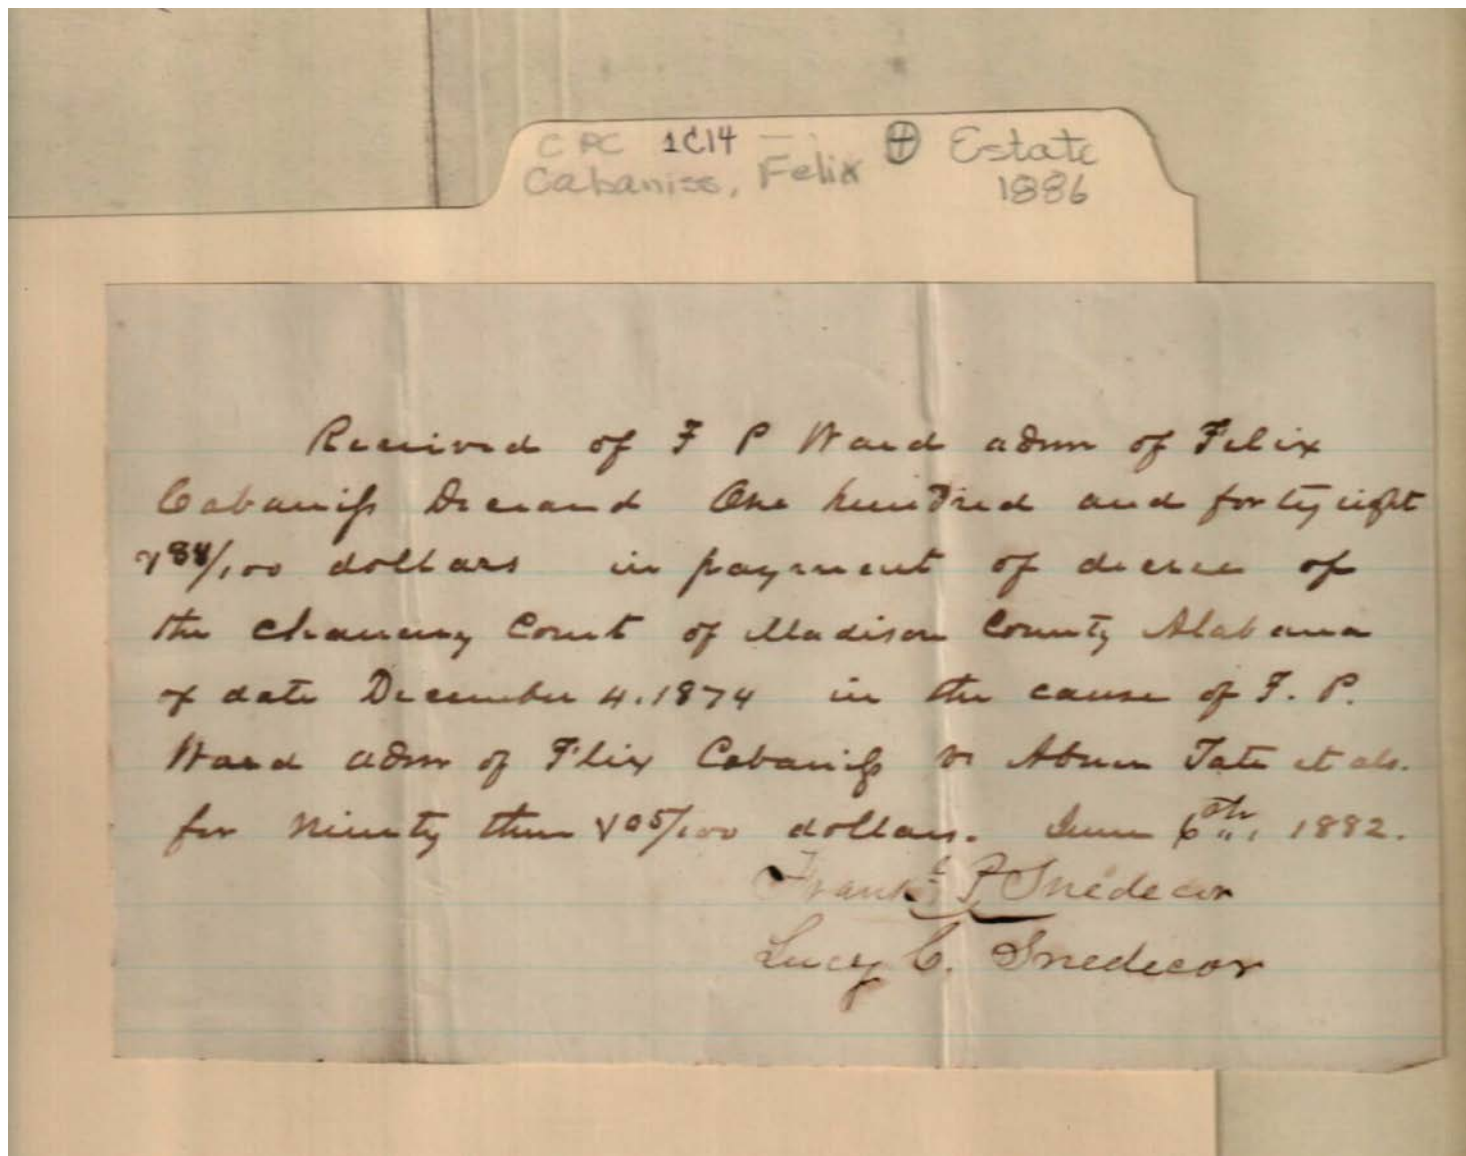 CPC 1C14 Estate
Cabaniss, Felix 1886
Received of F P Ward admr of Felix
Cabaniss Deceased One hundred and forty eight
& /100 dollars in payment of decree of
the Chancery Court of Madison County Alabama
of date December 4. 1874 in the cause of F. P.
Ward admr of Flix Cabaniss vs Tate et als.
for Ninety three & 05/100 dollars. June 6th, 1882.
Frank P Snedecor
Lucy C. Snedecor